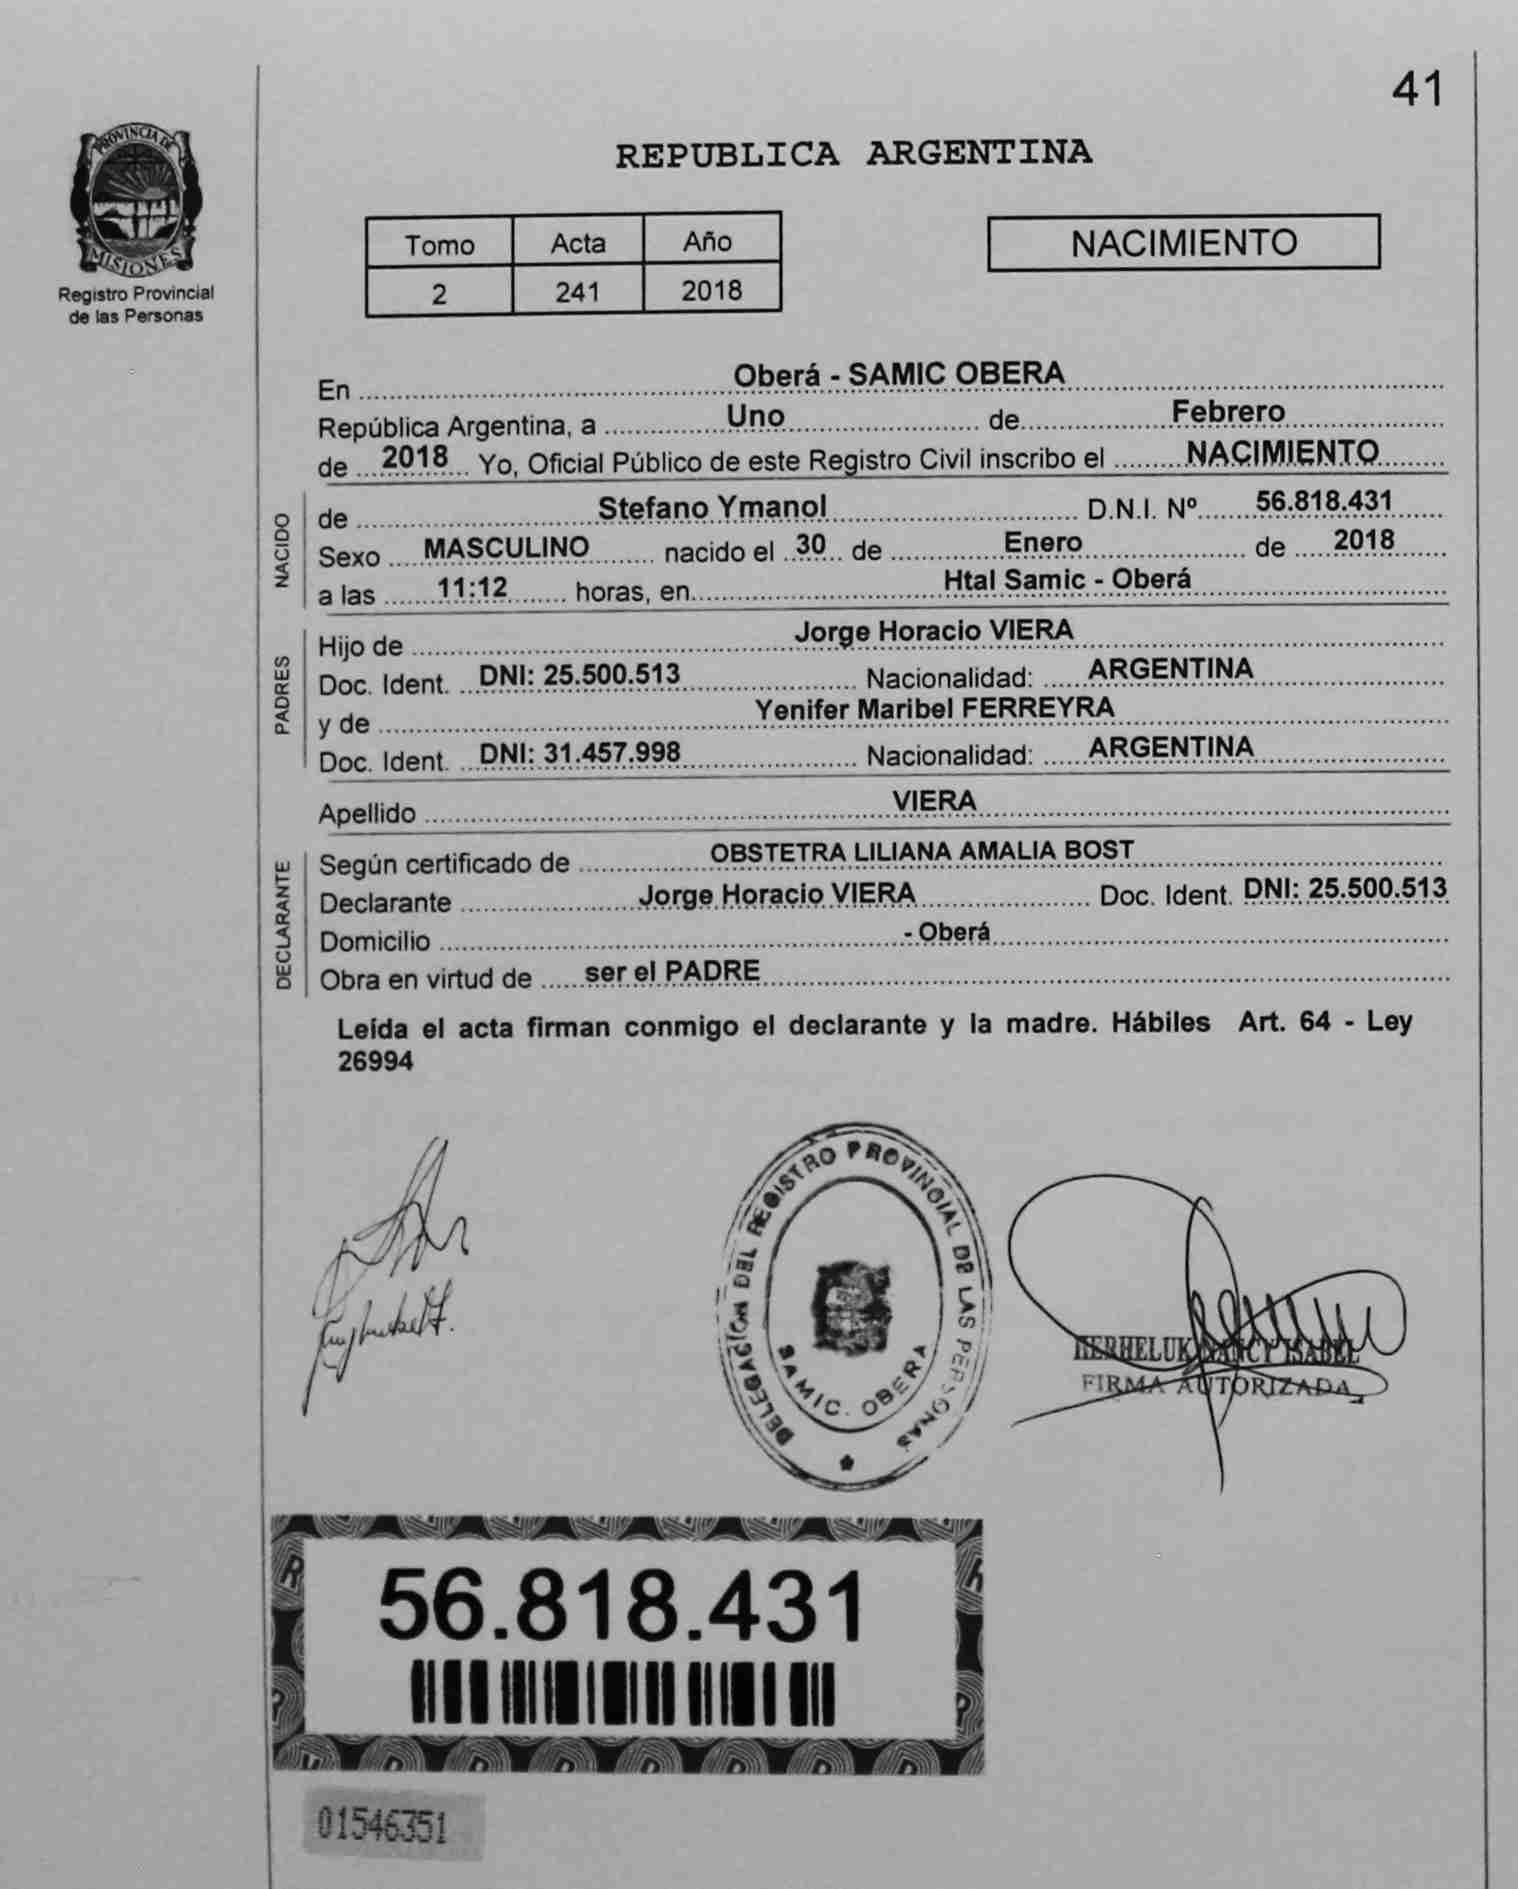 41
PROVINCIA DE
MISIONES
Registro Provincial
de las Personas
REPUBLICA ARGENTINA
Tomo Acta Año
2 241 2018
NACIMIENTO
En Oberá - SAMIC OBERA
República Argentina, a Uno de Febrero
de 2018 Yo, Oficial Público de este Registro Civil inscribo el NACIMIENTO
NACIDO
de Stefano Ymanol D.N.I. Nº 56.818.431
Sexo MASCULINO nacido el 30 de Enero de 2018
a las 11:12 horas, en Htal Samic - Oberá
PADRES
Hijo de Jorge Horacio VIERA
Doc. Ident. DNI: 25.500.513 Nacionalidad: ARGENTINA
y de Yenifer Maribel FERREYRA
Doc. Ident. DNI: 31.457.998 Nacionalidad: ARGENTINA
Apellido VIERA
DECLARANTE
Según certificado de OBSTETRA LILIANA AMALIA BOST
Declarante Jorge Horacio VIERA Doc. Ident. DNI: 25.500.513
Domicilio - Oberá
Obra en virtud de ser el PADRE
Leída el acta firman conmigo el declarante y la madre. Hábiles Art. 64 - Ley
26994
DELEGACION DEL REGISTRO PROVINCIAL DE LAS PERSONAS
SAMIC. OBERA
NANCY ISABEL
FIRMA AUTORIZADA
56.818.431
01546351